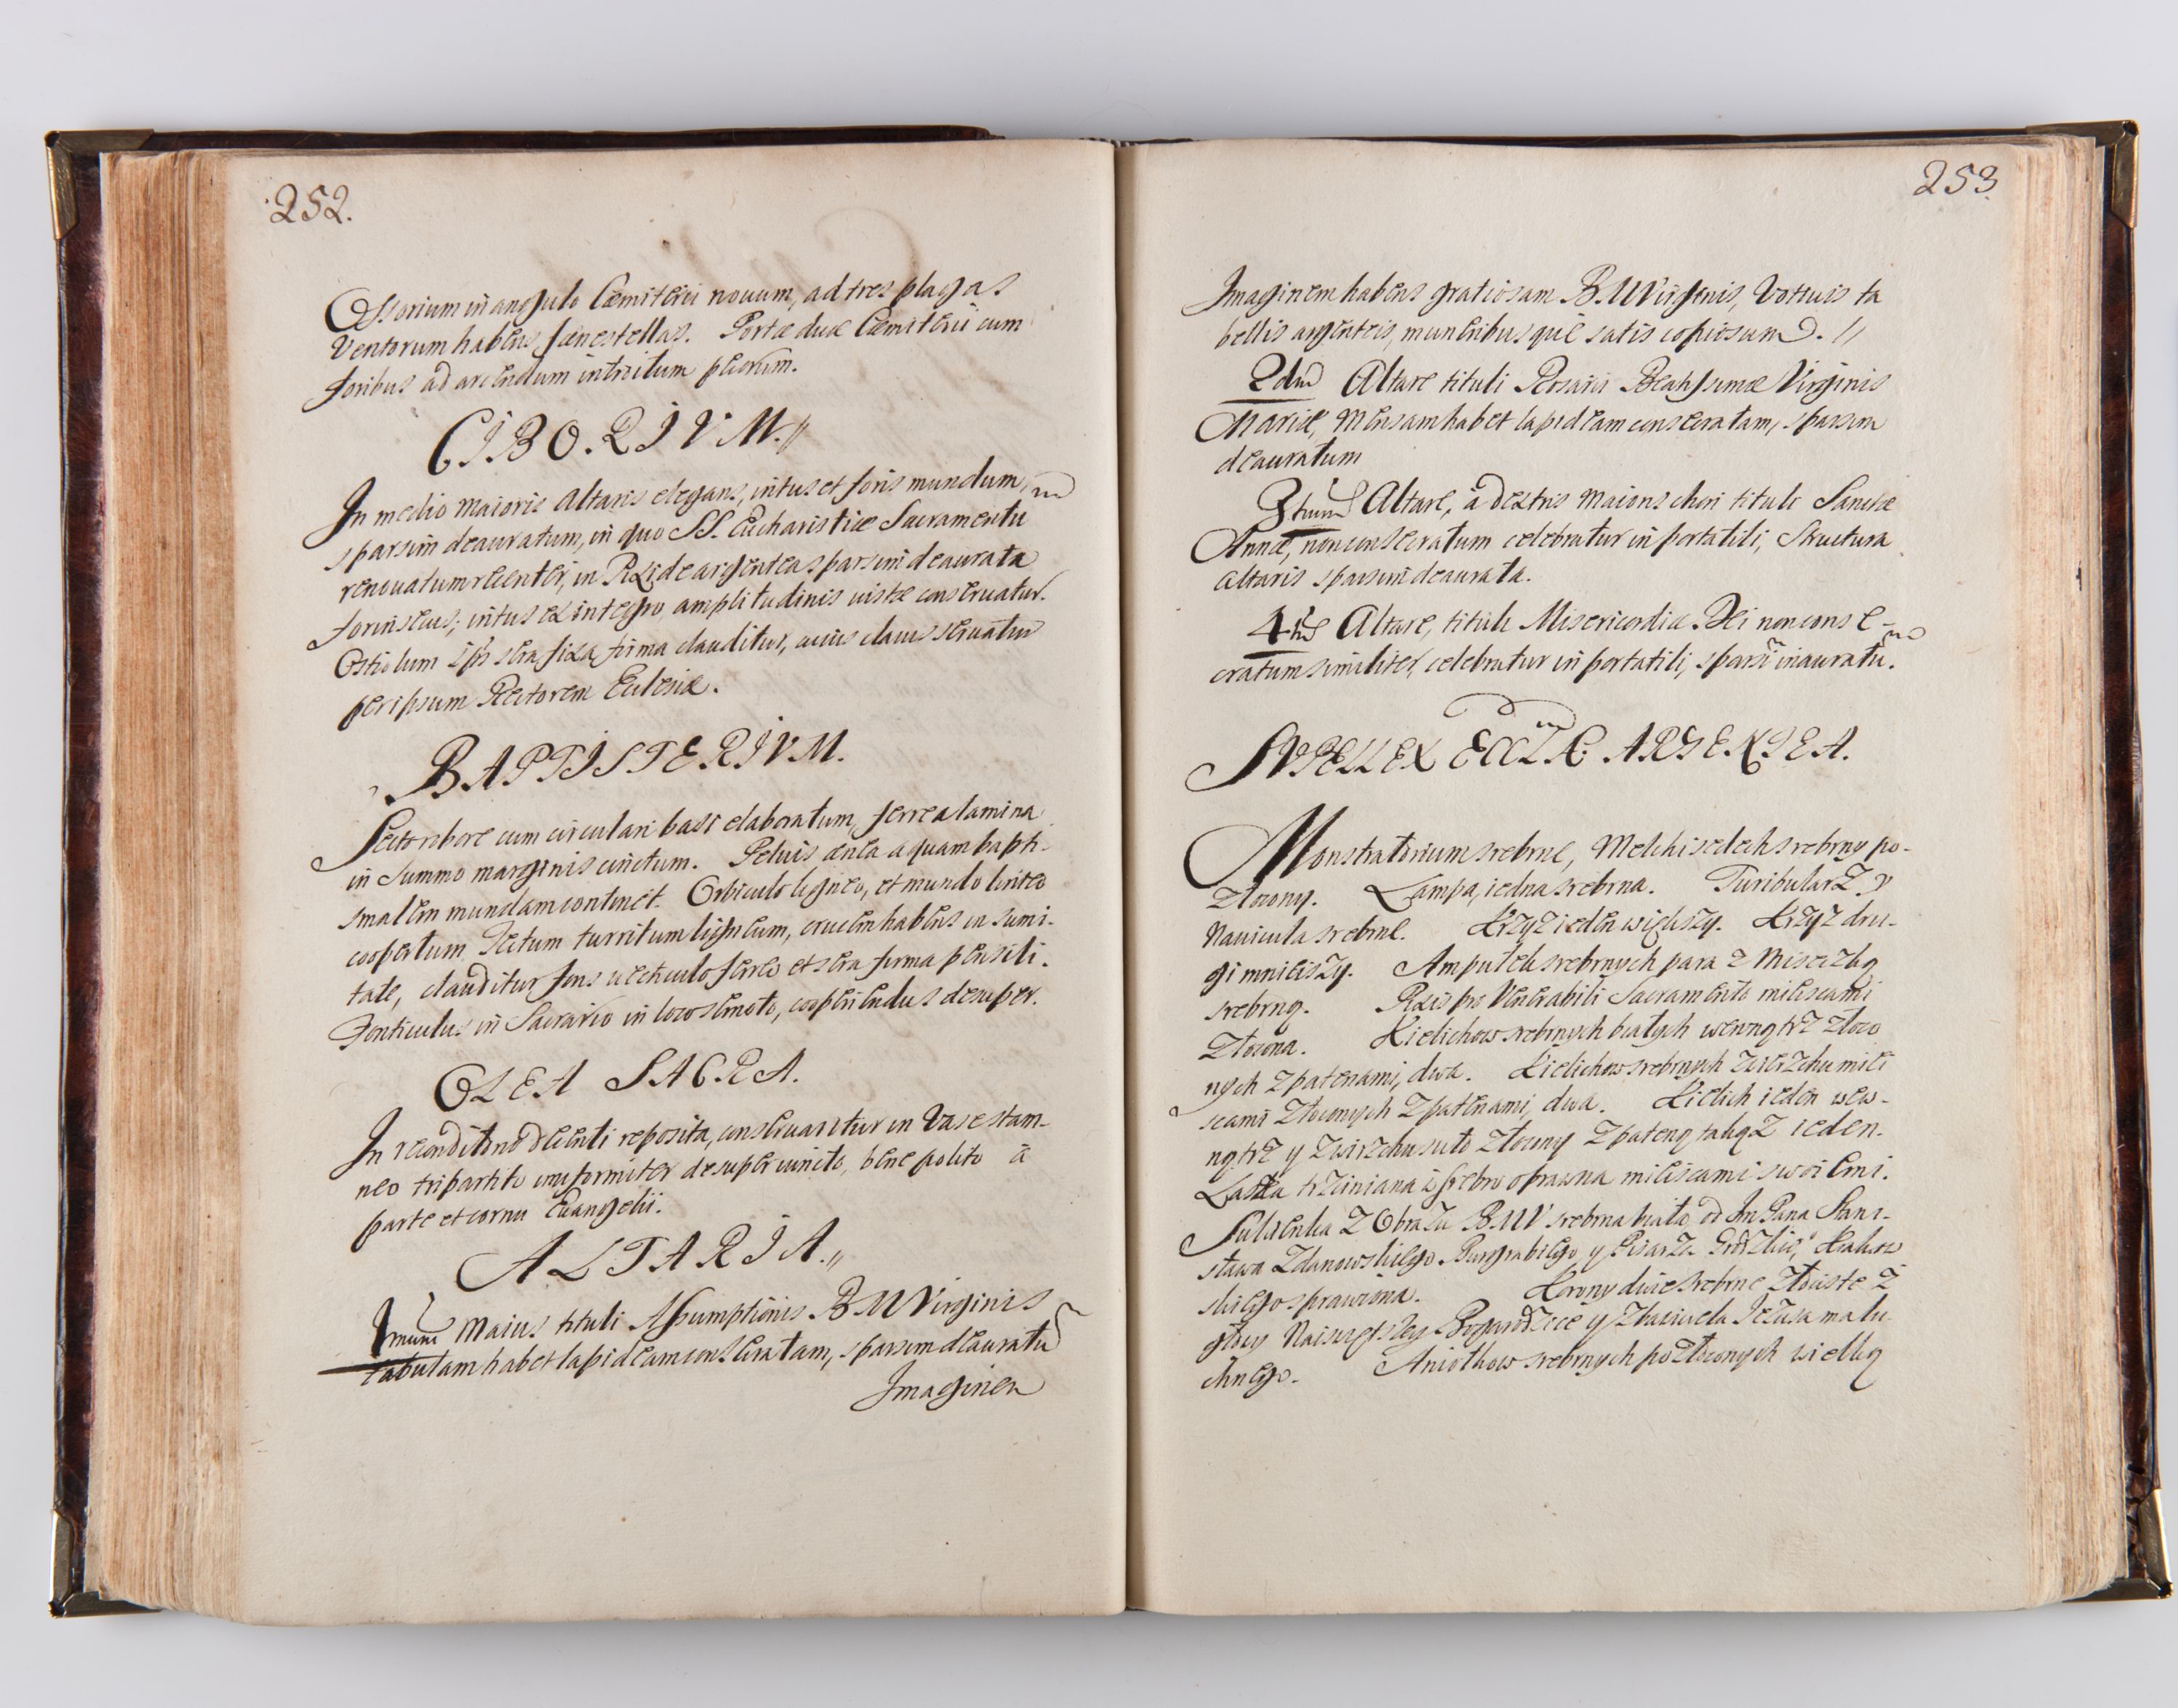 252.
Ossorium in angulo Cœmiterii nouum, ad tres plagas
Ventorum habens fœnestellas. Portæ duæ Cœmiterii cum
foribus ad arcendum introitum pecorum.
CIBORIVM.//
In medio maioris Altaris elegans, intus et foris mundum,
sparsim deauratum, in quo SS. Eucharistiæ Sacramentu
renouatum recenter, in Pixide argentea sparsim deaurata
forinsecus; intus ex integro, amplitudinis iustæ conseruatur.
Ostiolum sera fixa firma clauditur, cuius clauis seruatur
per ipsum Rectorem Eclesiæ.
BAPTISTERIVM.
Secto robore cum circulari basi elaboratum, ferrea lamina
in summo marginis cinctum. Peluis ænea aquam bapti-
smalem mundam continet. Orbiculo ligneo, et mundo linteo
coopertum. Tectum turritum ligneum, crucem habens in sumi-
tate, clauditur fons vecticulo ferreo et sera firma pensili.
Fonticulus in Sacrario in loco semoto, cooperiendus desuper.
OLEA SACRA.
In reconditorio decenti reposita, conseruantur in Vase stam-
neo tripartito uniformiter desuper iuncto, bene polito à
parte et cornu Euangelii.
ALTARIA.//
1mum Maius tituli Assumptionis B M Virginis
tabulam habet lapideam consecratam, sparsim deauratu
Imaginem
253
Imaginem habens gratiosam B. M Virginis, Votiuis ta
bellis argenteis, muneribusque satis copiosam. //
2dum Altare tituli Rosarii Beatissimæ Virginis
Mariæ, Mensam habet lapideam consecratam, sparsim
deauratum
3tium Altare, a dextris maioris chori tituli Sanctæ
Annæ, non consecratum celebratur in portatili, Structura
altaris sparsim deaurata.
4tu Altare, tituli Misericordiæ Dei non conse-
cratum similiter, celebratur in portatili, sparsi inauratu.
SVPELLEX ECCLÆ ARGENTEA.
Monstratorium srebrne, Melchisedech srebrny po-
złocony. Lampa, iedna srebrna. Turibularz y
Nauicula srebrne. Krzyz ieden większy. Krzyz dru-
gi mnieiszy. Ampułek srebrnych para z Miseczką
srebrną. Pixis pro Venerabili Sacramento mieiscami
złocona. Kielichow srebrnych białych wewnątrz złoco
nych z patenami, dwa. Kielichow srebrnych zwierzchu miei
scami złoconych z patenami, dwa. Kielich ieden wew-
nątrz y zwierzchu suto złocony z pateną takąz ieden.
Laska trzciniana w srebro oprawna mieiscami swoiemi.
Sukienka z Obrazu B M V srebrna biała, od Im Pana Stani-
sława Zdanowskiego Burgrabiego y Pisarza Grodzkie, Krakow
skiego sprawiona. Korony dwie srebrne złociste z
głowy Naiswiętszey Bogarodzice y Zbawiciela Jezusa malu
chnego. Aniołkow srebrnych pozłoconych wielką